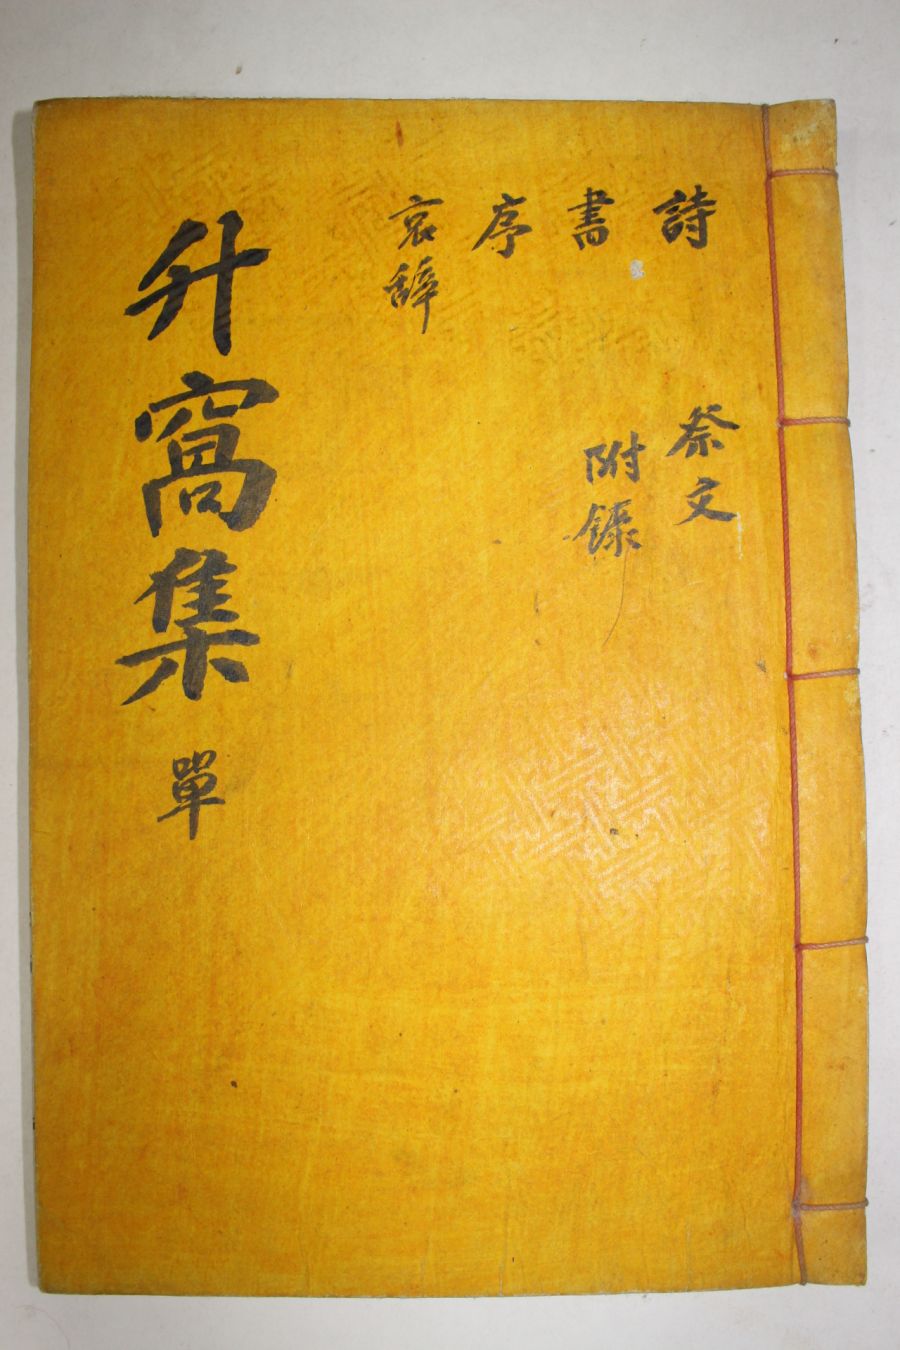 詩
書
序
哀辭
祭文
附錄
升窩集 單